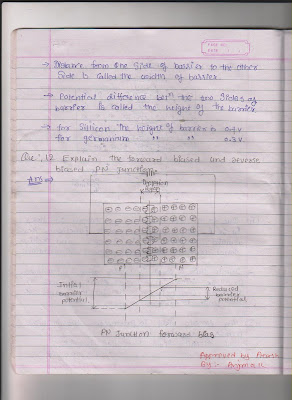 → Distance from one side of barrier to the other
side is called the width of barrier.
→ Potential difference betn the two sides of
barrier is called the height of the barrier
→ for silicon the height of barrier is 0.7V
for germanium " " " 0.3V
Que:12 Explain the forward biased and reverse
biased PN junction.
Ans ⇒
Depletion
P
N
Initial
barrier
potential
Reduced
barrier
potential
PN Junction forward bias
Approved by
By :-